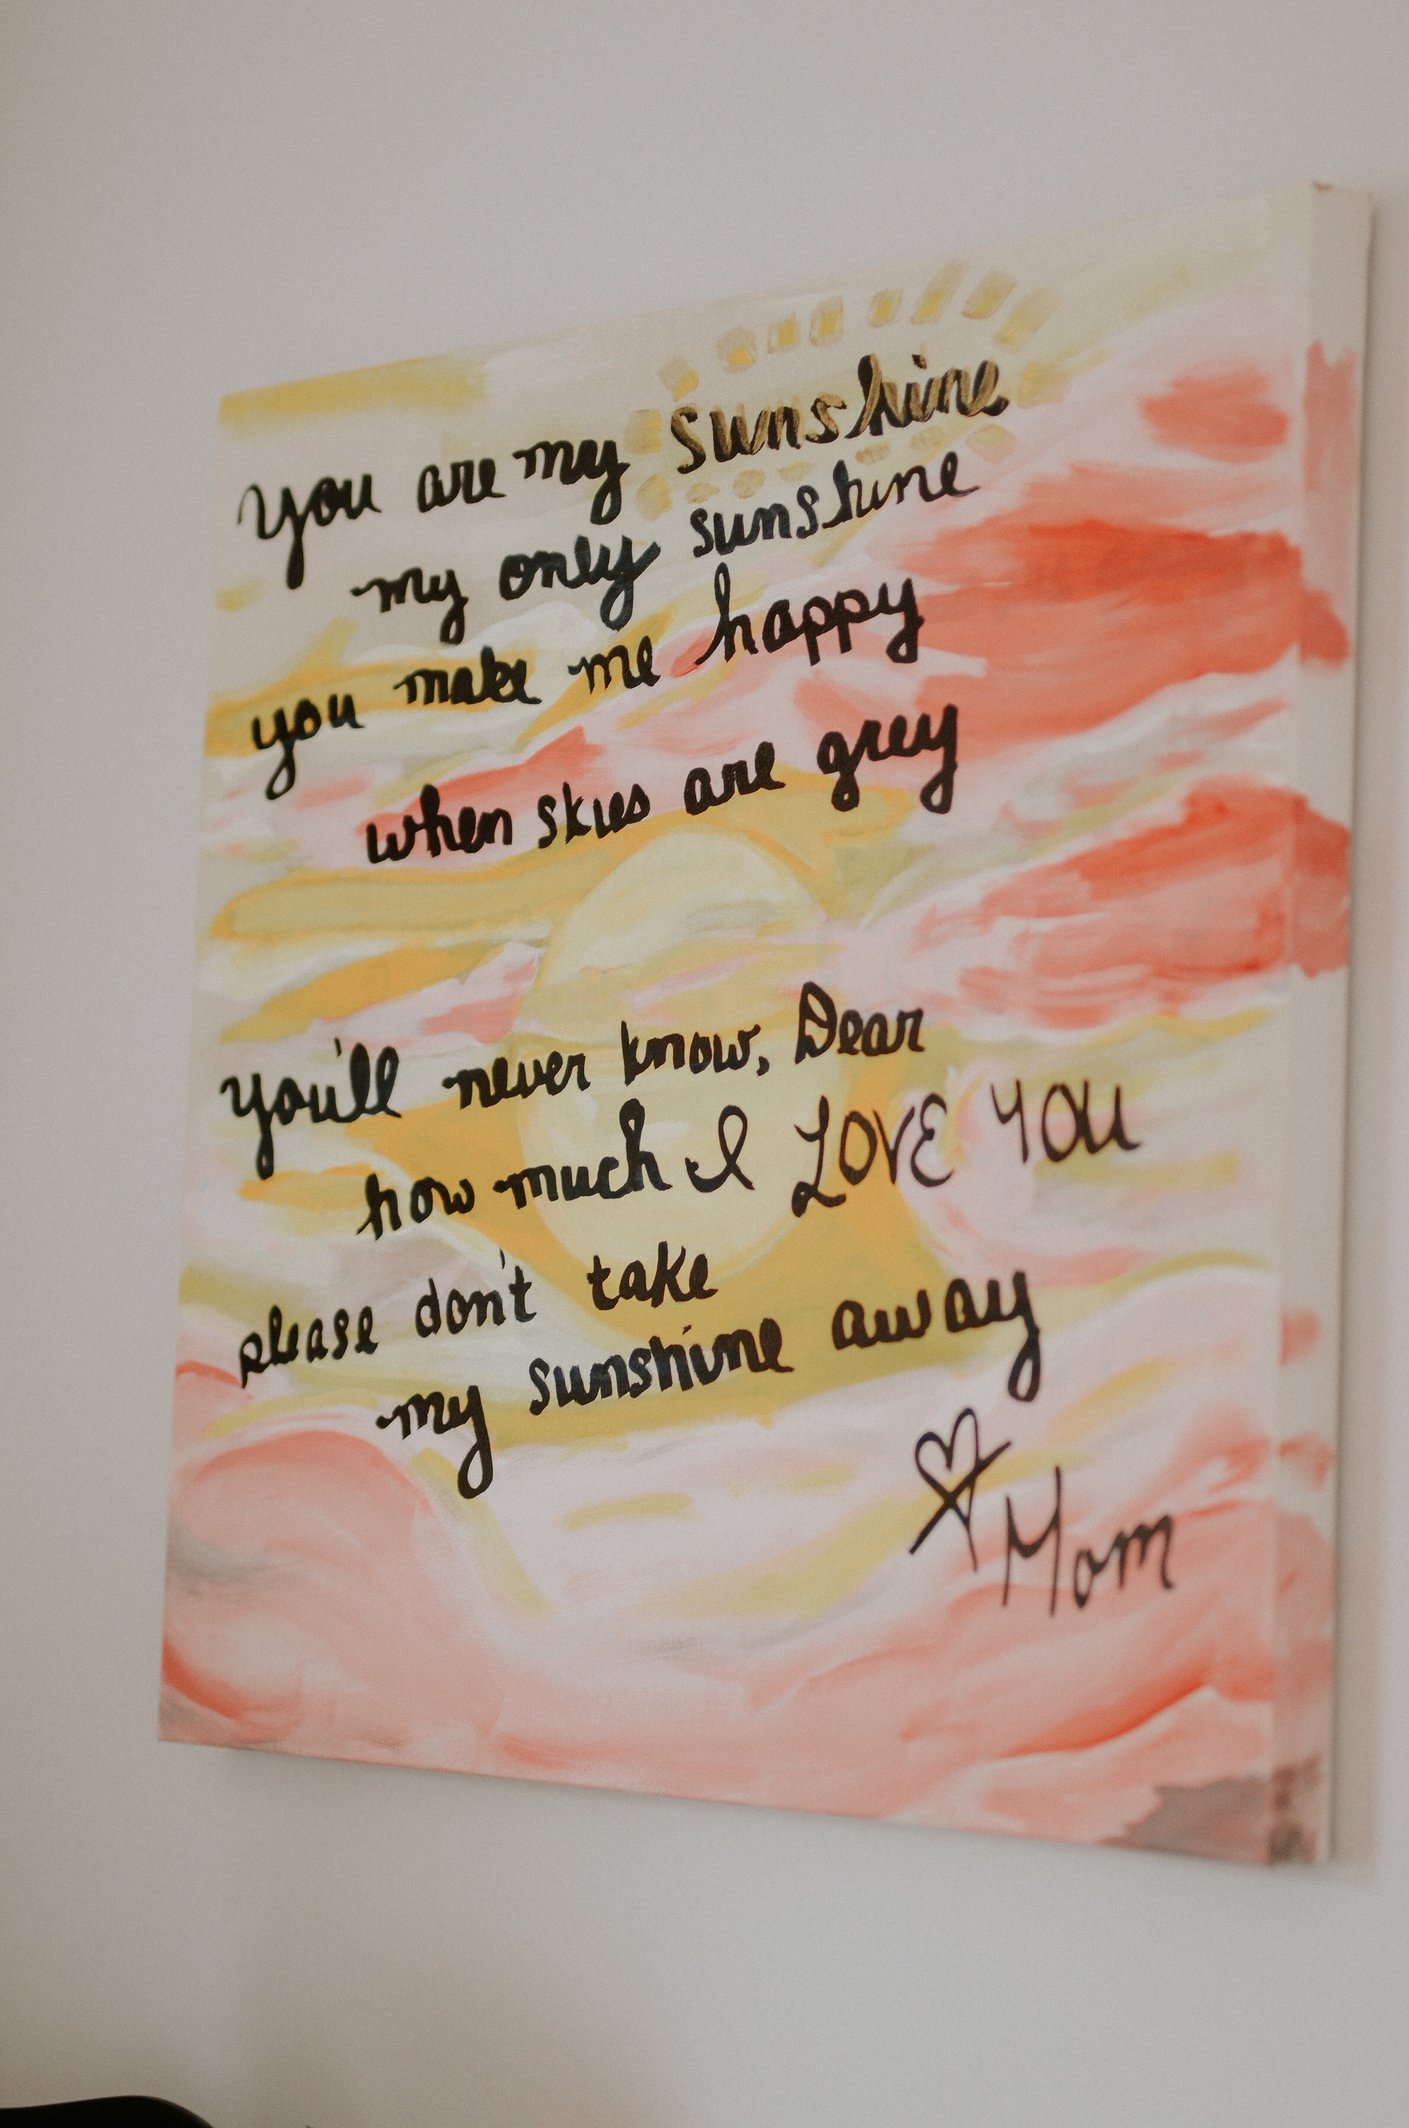 you are my sunshine
my only sunshine
you make me happy
when skies are grey
you'll never know, Dear
how much I LOVE YOU
please don't take
my sunshine away
♡ Mom